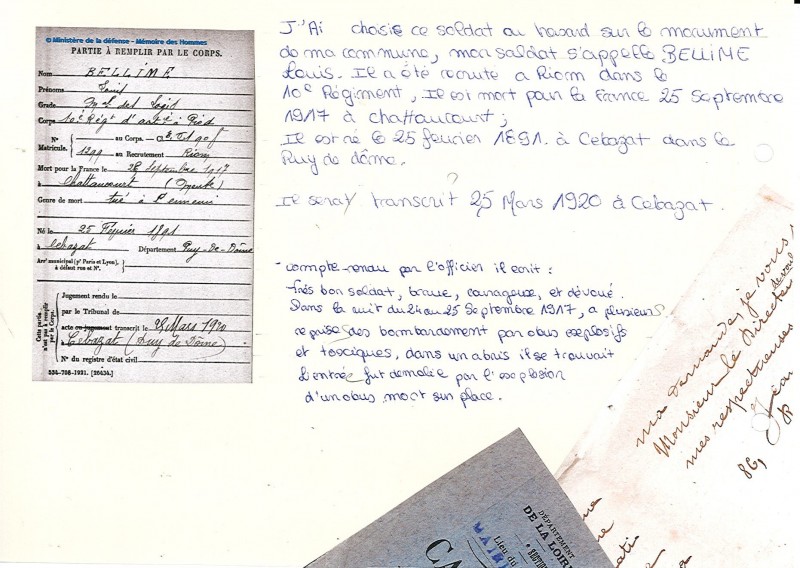 © Ministère de la défense - Mémoire des Hommes
PARTIE À REMPLIR PAR LE CORPS.
Nom BELLIME
Prénoms Louis
Grade Mal des Logis
Corps 10e Régt d'artie à Pied
N° au Corps.
Matricule. 1299 au Recrutement Riom
Mort pour la France le 25 Septembre 1917
à Chattancourt (Meuse)
Genre de mort tué à l'ennemi
Né le 25 Février 1891
à Cébazat Département Puy-De-Dôme
Arrt municipal (pr Paris et Lyon),
à défaut rue et N°.
Cette partie
n'est pas à remplir
par le Corps.
Jugement rendu le
par le Tribunal de
acte ou jugement transcrit le 25 Mars 1920
Cébazat (Puy de Dôme)
N° du registre d'état civil
534-708-1921. [26434.]
J''Ai choisie ce soldat au hasard sur le monument
de ma commune, mon soldat s'appelle BELLIME
Louis. Il a été recruté a Riom dans le
10e Régiment, Il est mort pour la France 25 Septembre
1917 à chattaucourt;
Il est né le 25 feurier 1891. à Cebazat dans le
Puy de dôme.
?
Il serat transcrit 25 Mars 1920 à Cebazat.
- compte-renau par l'officier il ecrit :
Très bon soldat, braue, courageuse, et dévoué.
Dans la nuit du 24 au 25 Septembre 1917, a plusieurs
reprise des bombardement par obus explosifs
et toxciques, dans un abris il se trouvait
L'entrée fut demolie par l'explosion
d'un obus mort sur place.
ma demande, je vous
Monsieur le Directeur
mes respectueuses
86,
DÉPARTEMENT
DE LA LOIRE
Lieu du
MAIRI
CA